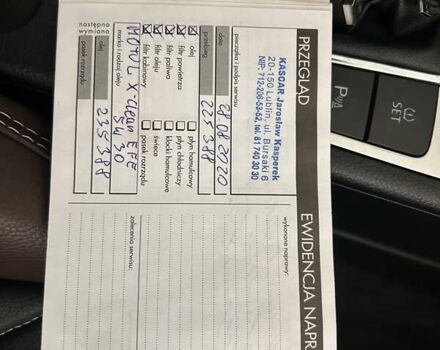 PRZEGLĄD
KASCAR Jarosław Kasperek
20-150 Lublin, ul. Bursaki 6
NIP: 712-206-53-52, tel. 81 740 30 30
pieczątka i podpis serwisu
data 28 08 2020
przebieg 225 388
olej płyn hamulcowy
filtr powietrza płyn chłodniczy
filtr paliwa klocki hamulcowe
filtr oleju świece
filtr kabinowy pasek rozrządu
marka i rodzaj oleju
MOTUL X-clean EFE
5W30
następna wymiana
olej 235 388
pasek rozrządu
EWIDENCJA NAPR
wykonane naprawy:
zalecenia serwisu:
SET